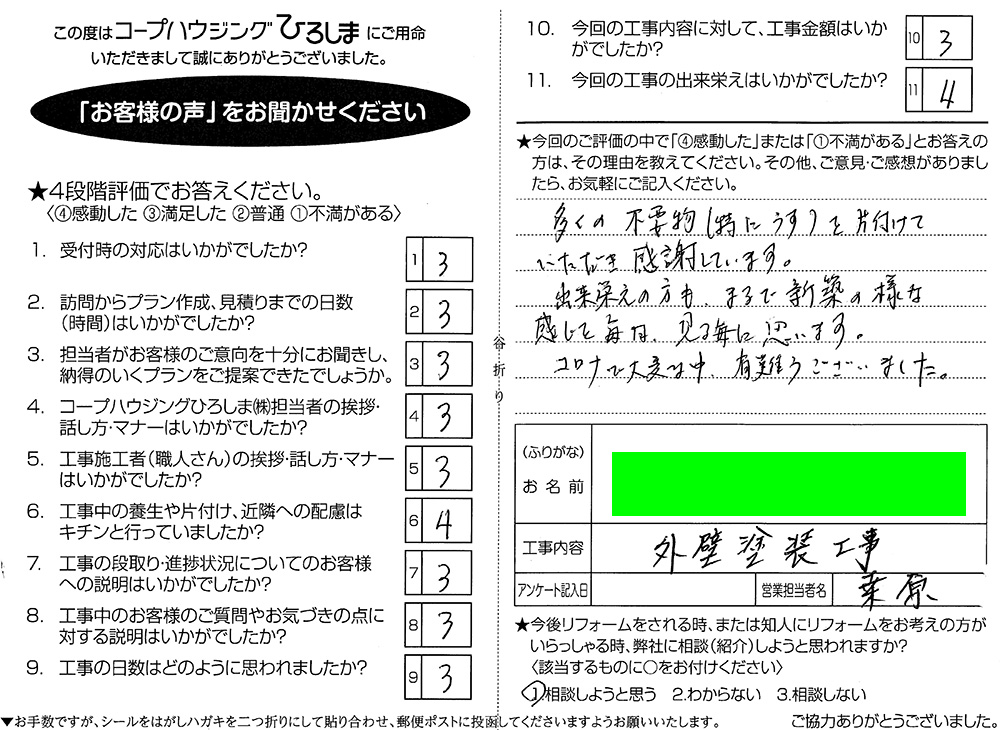 この度はコープハウジングひろしまにご用命
いただきまして誠にありがとうございました。
「お客様の声」をお聞かせください
★4段階評価でお答えください。
〈④感動した ③満足した ②普通 ①不満がある〉
1. 受付時の対応はいかがでしたか?
1 3
2. 訪問からプラン作成、見積りまでの日数
(時間)はいかがでしたか?
2 3
3. 担当者がお客様のご意向を十分にお聞きし、
納得のいくプランをご提案できたでしょうか。
3 3
4. コープハウジングひろしま㈱担当者の挨拶・
話し方・マナーはいかがでしたか?
4 3
5. 工事施工者(職人さん)の挨拶・話し方・マナー
はいかがでしたか?
5 3
6. 工事中の養生や片付け、近隣への配慮は
キチンと行っていましたか?
6 4
7. 工事の段取り・進捗状況についてのお客様
への説明はいかがでしたか?
7 3
8. 工事中のお客様のご質問やお気づきの点に
対する説明はいかがでしたか?
8 3
9. 工事の日数はどのように思われましたか?
9 3
谷折り
10. 今回の工事内容に対して、工事金額はいか
がでしたか?
10 3
11. 今回の工事の出来栄えはいかがでしたか?
11 4
★今回のご評価の中で「④感動した」または「①不満がある」とお答えの
方は、その理由を教えてください。その他、ご意見・ご感想がありまし
たら、お気軽にご記入ください。
多くの不要物(特にうす)を片付けて
いただき感謝しています。
出来栄えの方も、まるで新築の様な
感じで毎日、見る毎に思います。
コロナで大変な中、有難うございました。
(ふりがな)
お名前
工事内容
外壁塗装工事
アンケート記入日
営業担当者名
栗原
★今後リフォームをされる時、または知人にリフォームをお考えの方が
いらっしゃる時、弊社に相談(紹介)しようと思われますか?
〈該当するものに○をお付けください〉
1.相談しようと思う 2.わからない 3.相談しない
▼お手数ですが、シールをはがしハガキを二つ折りにして貼り合わせ、郵便ポストに投函してくださいますようお願いいたします。
ご協力ありがとうございました。